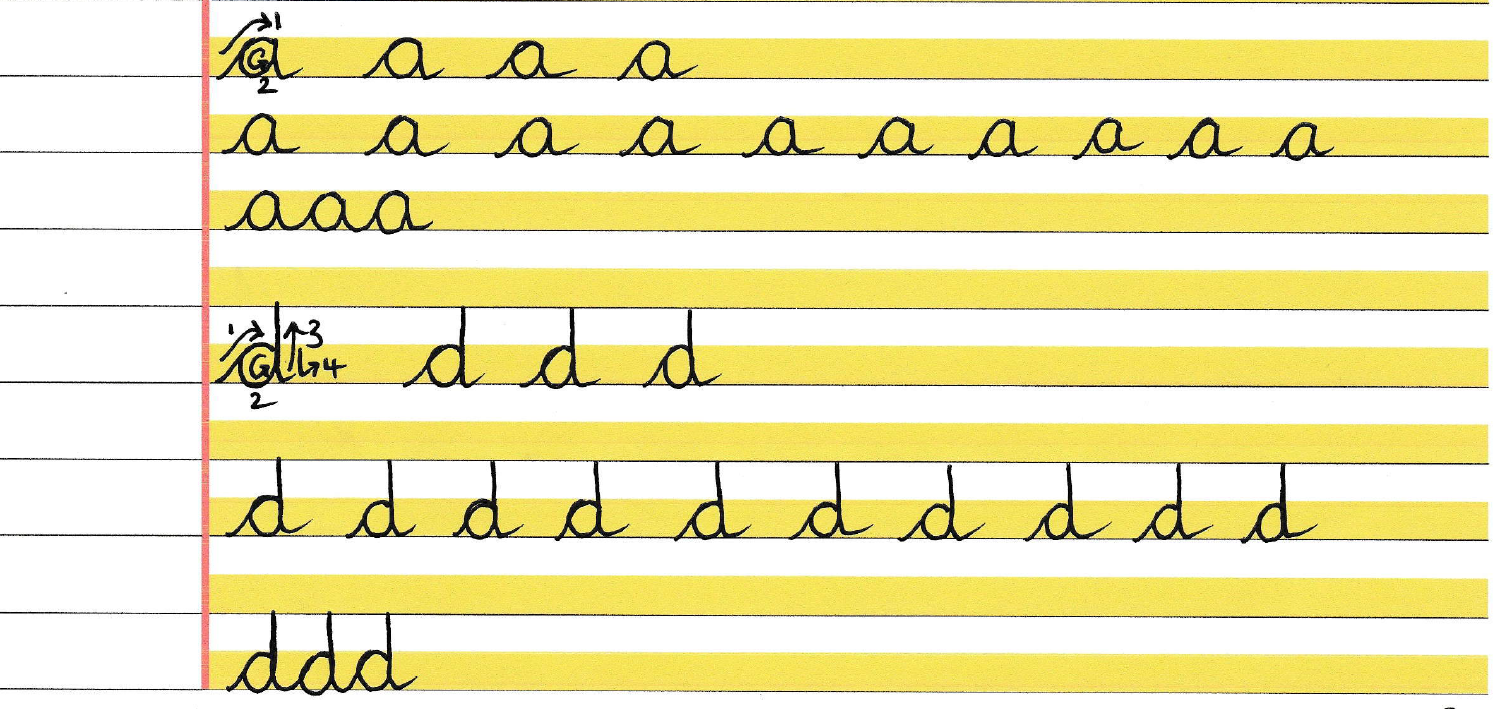 1
a a a a
2
a a a a a a a a a a
aaa
1 3
d 4 d d d
2
d d d d d d d d d d
ddd